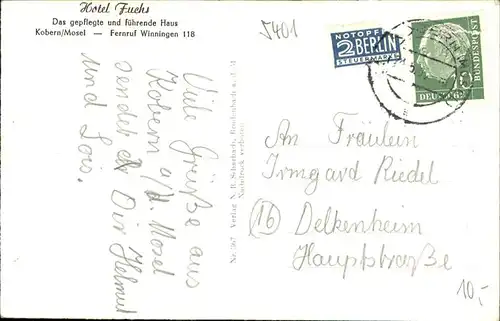 Hotel Fuchs
Das gepflegte und führende Haus
Kobern/Mosel — Fernruf Winningen 118
5401
NOTOPFER
2 BERLIN
STEUERMARKE
DEUTSCHE
BUNDESPOST
10
Viele Grüße aus
Kobern a/d. Mosel
sendet Dir Helmut
und Lois.
Nr. 367 Verlag N. R.
Nachdruck verboten
An Fräulein
Irmgard Riedel
(16) Delkenheim
Hauptstraße
10,-